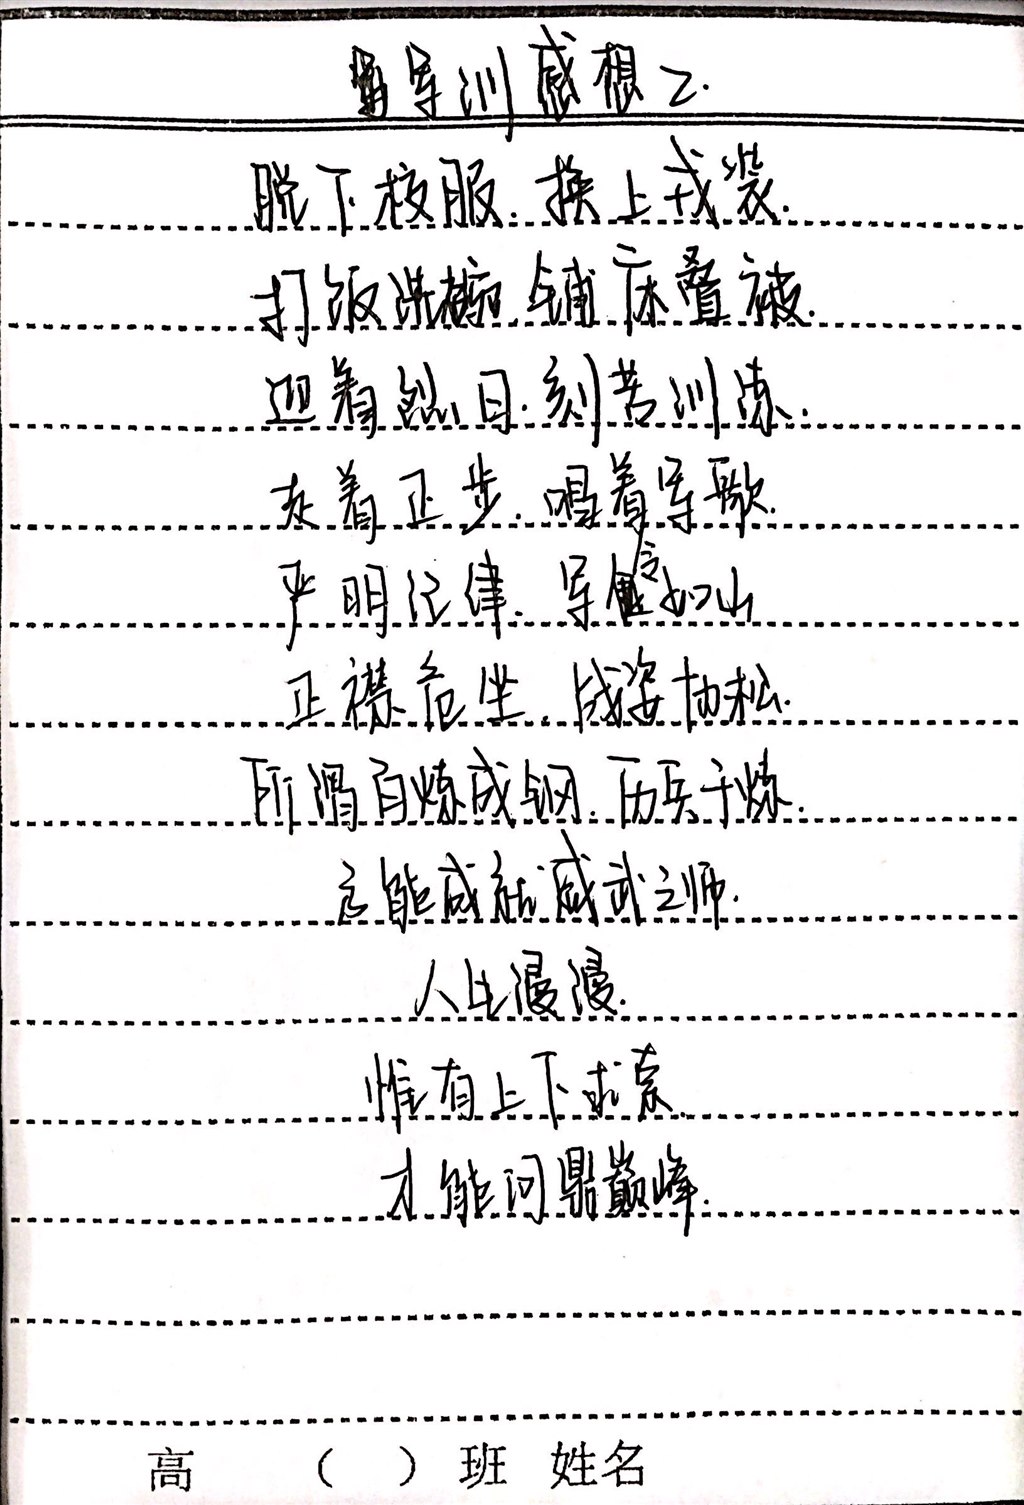 军训感想乙.
脱下校服.换上戎装.
打饭洗碗.铺床叠被.
迎着烈日.刻苦训练.
走着正步.唱着军歌.
严明纪律.军令如山
正襟危坐.战姿如松.
所谓百炼成钢.历兵千炼.
方能成就威武之师.
人生漫漫.
惟有上下求索.
才能问鼎巅峰.
高 （ ） 班 姓名